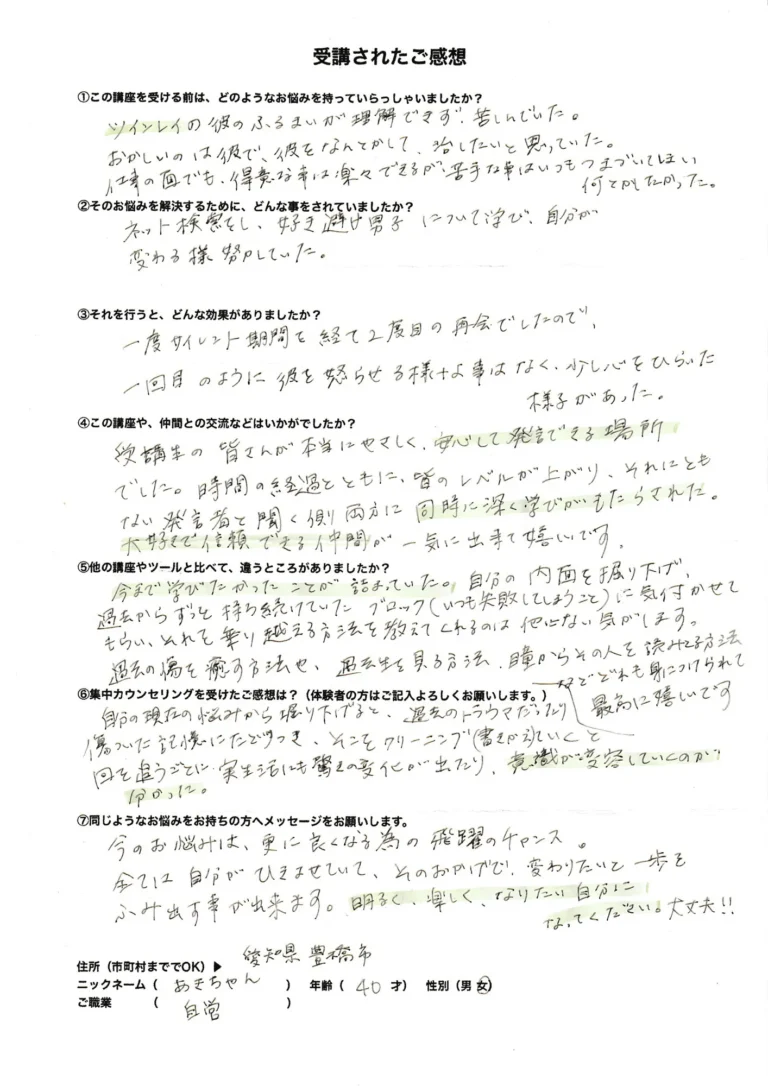 受講されたご感想
①この講座を受ける前は、どのようなお悩みを持っていらっしゃいましたか？
ツインレイの彼のふるまいが理解できず、苦しんでいた。
おかしいのは彼で、彼をなんとかして、治したいと思っていた。
仕事の面でも、得意な事は楽々できるが、苦手な事はいつもつまづいてしまい
何とかしたかった。
②そのお悩みを解決するために、どんな事をされていましたか？
ネット検索をし、好き避け男子について学び、自分が
変わる様努力していた。
③それを行うと、どんな効果がありましたか？
一度サイレント期間を経て2度目の再会でしたので、
一回目のように彼を怒らせる様な事はなく、少し心をひらいた
様子があった。
④この講座や、仲間との交流などはいかがでしたか？
受講生の皆さんが本当にやさしく、安心して発言できる場所
でした。時間の経過とともに、皆のレベルが上がり、それにとも
ない発言者と聞く側両方に同時に深く学びがもたらされた。
大好きで信頼できる仲間が一気に出来て嬉しいです。
⑤他の講座やツールと比べて、違うところがありましたか？
今まで学びたかったことが詰まっていた。自分の内面を掘り下げ、
過去からずっと持ち続けていたブロック(いつも失敗してしまうこと)に気付かせて
もらい、それを乗り越える方法を教えてくれるのは他にない気がします。
過去の傷を癒す方法や、過去生を見る方法、瞳からその人を読みとる方法
などどれも身につけられて
最高に嬉しいです
⑥集中カウンセリングを受けたご感想は？（体験者の方はご記入よろしくお願いします。）
自分の現在の悩みから掘り下げると、過去のトラウマだったり
傷ついた記憶にたどりつき、そこをクリーニング(書きかえ)していくと
回を追うごとに実生活にも驚きの変化が出たり、意識が変容していくのが
分かった。
⑦同じようなお悩みをお持ちの方へメッセージをお願いします。
今のお悩みは、更に良くなる為の飛躍のチャンス。
全ては自分がひきよせていて、そのおかげで、変わりたいと一歩を
ふみ出す事が出来ます。明るく、楽しく、なりたい自分に
なってください。大丈夫!!
住所（市町村まででOK）▶ 愛知県豊橋市
ニックネーム（ あきちゃん ） 年齢（ 40 才） 性別（男 女）
ご職業 （ 自営 ）